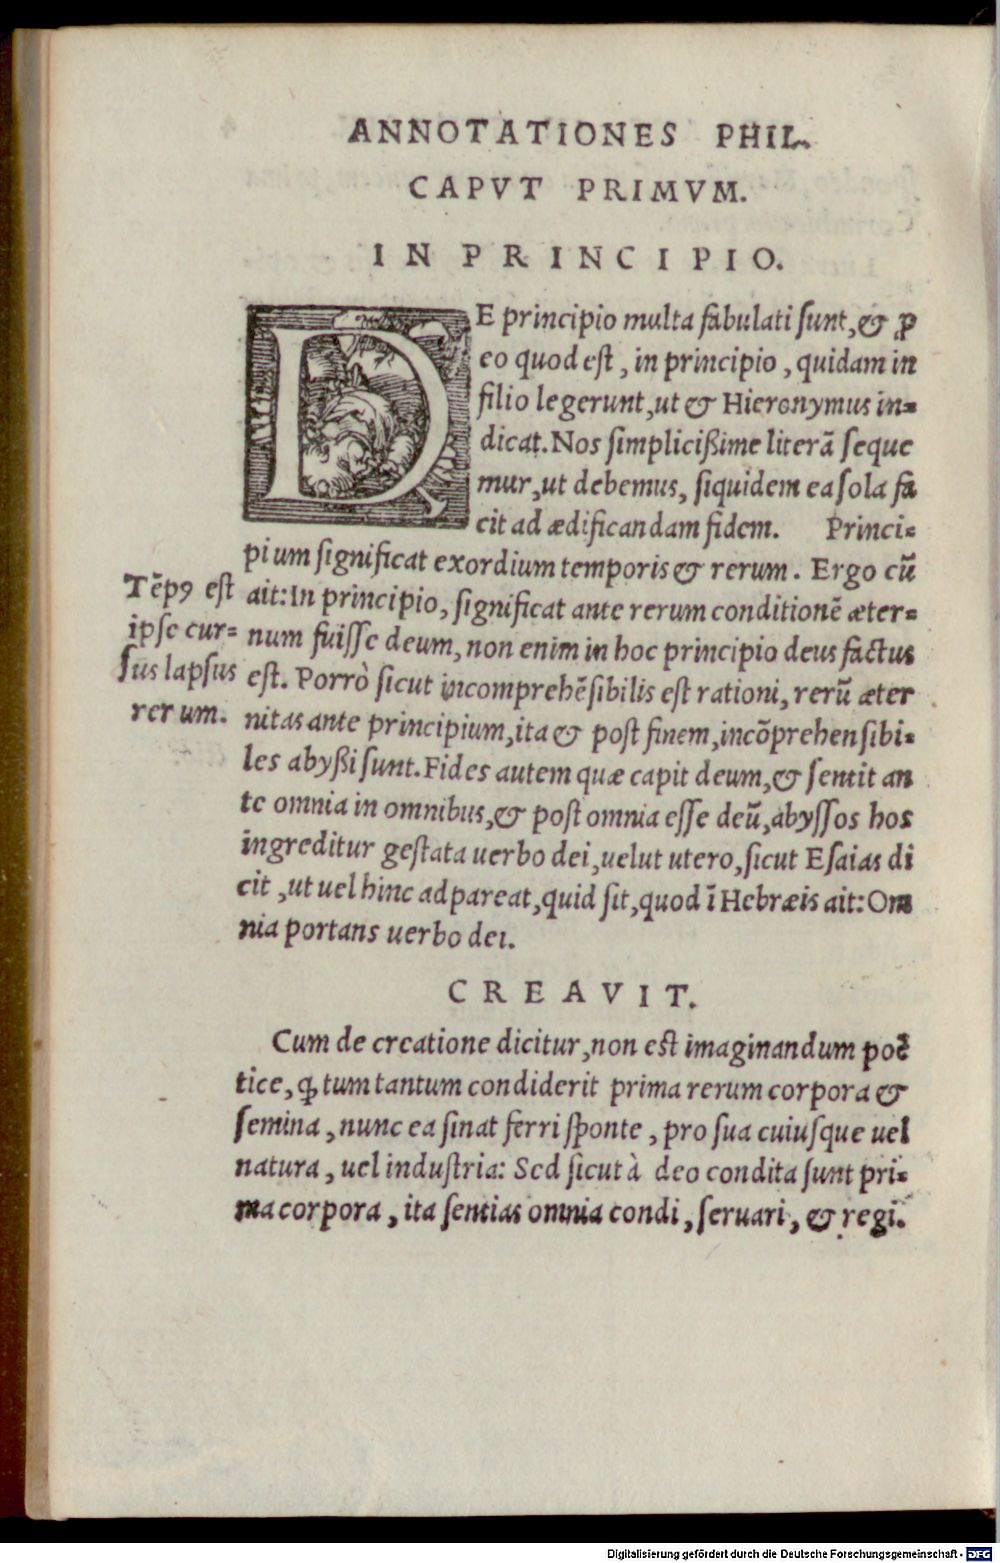 ANNOTATIONES PHIL.
CAPVT PRIMVM.
IN PRINCIPIO.
DE principio multa fabulati sunt, & ꝑ
eo quod est, in principio, quidam in
filio legerunt, ut & Hieronymus in=
dicat. Nos simplicißime literā seque
mur, ut debemus, siquidem ea sola fa
cit ad ædificandam fidem. Princi=
pium significat exordium temporis & rerum. Ergo cū
ait: In principio, significat ante rerum conditionē æter=
num fuisse deum, non enim in hoc principio deus factus
est. Porrò sicut incomprehēsibilis est rationi, rerū æter
nitas ante principium, ita & post finem, incōprehensibi=
les abyßi sunt. Fides autem quæ capit deum, & sentit an
te omnia in omnibus, & post omnia esse deū, abyssos hos
ingreditur gestata uerbo dei, uelut utero, sicut Esaias di
cit, ut uel hinc adpareat, quid sit, quod ī Hebræis ait: Om
nia portans uerbo dei.
Tēpꝰ est
ipse cur=
sus lapsus
rerum.
CREAVIT.
Cum de creatione dicitur, non est imaginandum poē
tice, ꝙ tum tantum condiderit prima rerum corpora &
semina, nunc ea sinat ferri sponte, pro sua cuiusque uel
natura, uel industria: Sed sicut à deo condita sunt pri=
ma corpora, ita sentias omnia condi, seruari, & regi.
Digitalisierung gefördert durch die Deutsche Forschungsgemeinschaft - DFG